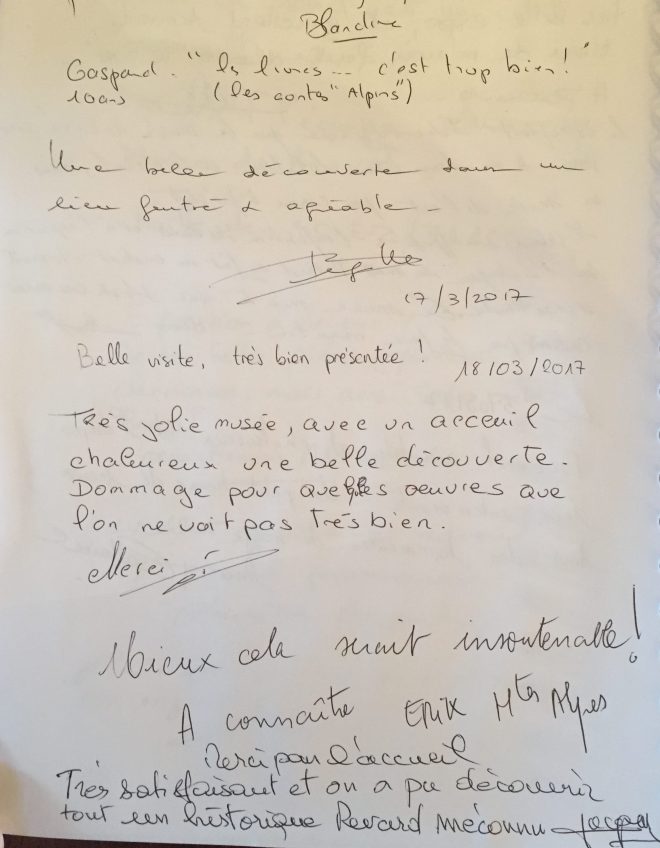 Blandine
Gaspard. "les livres... c'est trop bien!"
10ans (les contes "Alpins")
Une belle découverte dans un
lieu feutré & agréable -
17/3/2017
Belle visite, très bien présentée ! 18/03/2017
Très jolie musée, avec un acceuil
chaleureux une belle découverte.
Dommage pour quelques oeuvres que
l'on ne voit pas très bien.
Merci
Mieux cela serait insoutenable!
A connaître ERIK Htes Alpes
Merci pour l'accueil
Très satisfaisant et on a pu découvrir
tout un historique Revard méconnu Jacques